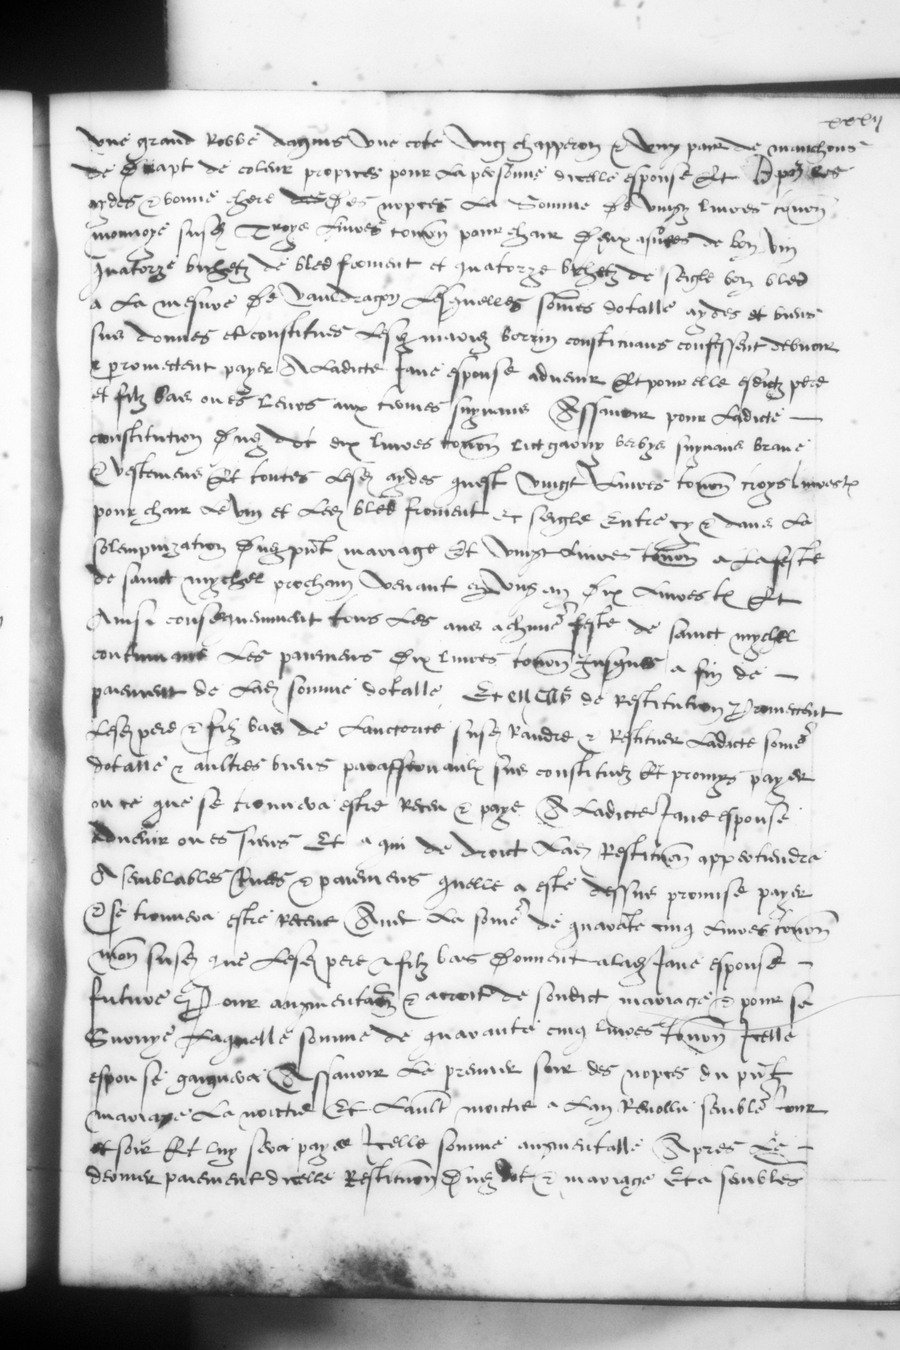 xxxij
une grand robbe dagnus une cote ung chapperon & ung pair de manchons
de drapt de coleur propices pour la personne dicelle espouse Et pour les
aydes & bonne chere des nopces la somme de vingt livres tourn
monnoye susd Troys livres tourn pour chair deux asnees de bon vin
quatorze bichetz de bled froment et quatorze bichetz de seigle bon bled
a la mesure de Lesquelles somes dotalle aydes et biens
sus donnes et constitues Lesd mariez constituans confessent debvoir
& promettent payer A Ladicte Jane espouse advenir Et pour elle esdictz pere
et filz bas ou es leurs aux termes suyvans Assavoir pour Ladicte
constitution dud dot dix livres tourn lict garny brebys suyvans brave
& vestemens Et toutes Lesd aydes quest vingt livres tourn troys livres tz
pour chair le vin et Led bled froment et seigle Entre cy & dans la
solempnization dud pnt mariage Et vingt livres tourn a La feste
de sainct mychel prochain venant en ung an dix livres tz Et
Ainsi consequemment tous Les ans a chune feste de sainct mychel
continuant Les paiemens dix livres tourn Jusques a fin de
paiement de Lad somme dotalle Et en cas de Restitution promettent
Lesd pere & filz bas de Lauctorite susd Randre & Restituer Ladicte some
dotalle & aultres biens sus constituez Et promys payer
ou ce que se trouvera estre Receu & paye A Ladicte Jane espouse
advenir ou es siens Et a qui de droict Lad Restitution appertiendra
A semblables termes & paiemens quelle a este dessus promise payer
& se trouvera estre receue Avec La some de quarante cinq livres tourn
mon susd que Lesd pere & filz bas donnent a lad Jane espouse
future Pour augmentation & accroit de sondict mariage & pour se
Survye Laquelle somme de quarante cinq livres tourn Icelle
espouse gaignera Assavoir Le premier soir des nopces du pnt
mariage La moictie Et Lault moictie a Lan Revollu semble Jour
et soir Et luy sera payee Icelle somme augmentalle Apres Le
dernier paiement dicelle Restitution dud dot & mariage Et a sembles